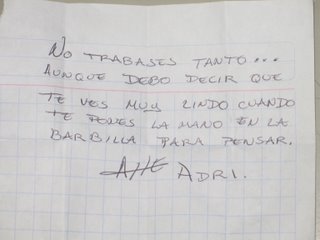 NO TRABASES TANTO...
AUNQUE DEBO DECIR QUE
TE VES MUY LINDO CUANDO
TE PONES LA MANO EN LA
BARBILLA PARA PENSAR.
ATTE ADRI.